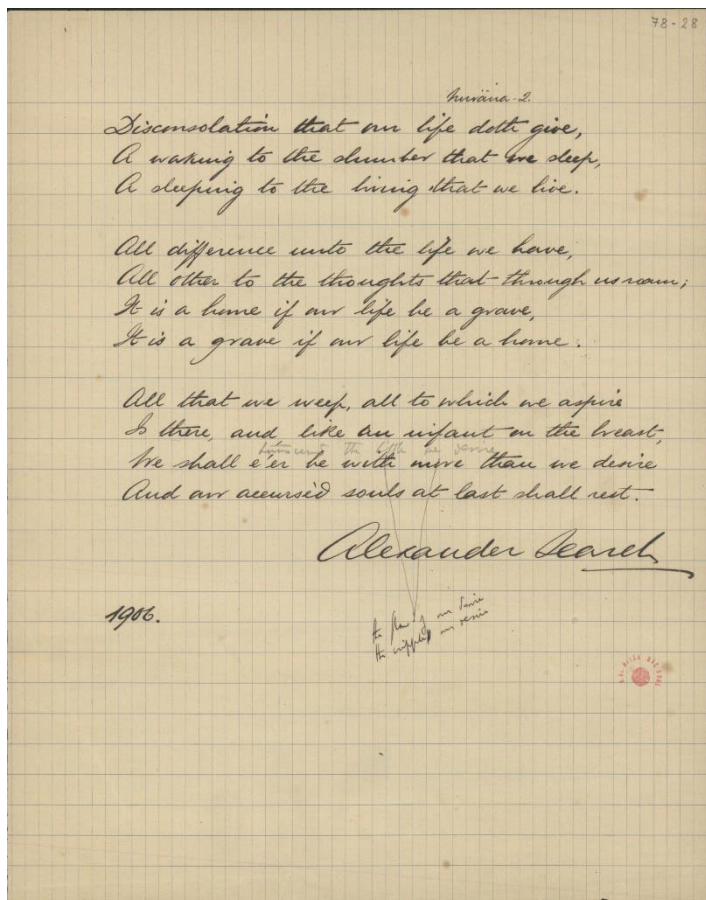 78-28
Nirvāna-2.
Disconsolation that our life doth give,
A waking to the slumber that we sleep,
A sleeping to the living that we live.
All difference unto the life we have,
All other to the thoughts that through us roam;
It is a home if our life be a grave,
It is a grave if our life be a home.
All that we weep, all to which we aspire
Is there, and like an infant on the breast,
the
We shall e'er be with more than we desire
And our accursèd souls at last shall rest.
Alexander Search
1906.
the of our desire
the our desire